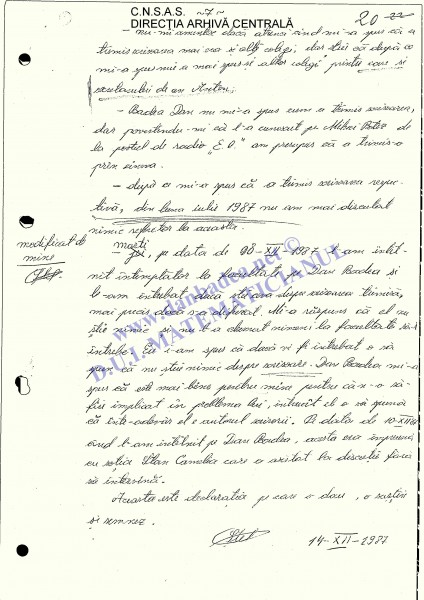 C.N.S.A.S. ~7~
DIRECȚIA ARHIVĂ CENTRALĂ
20 22
- nu-mi amintesc dacă atunci când mi-a spus că a
trimis scrisoarea mai era și alți colegi, dar știu că după ce
mi-a spus mie a mai spus și altor colegi printre care și
de an Anton;
- Badea Dan nu mi-a spus cum a trimis scrisoarea,
dar povestindu-mi că l-a cunoscut pe Mihei Peter de
la postul de radio „E.L." am presupus că a trimis-o
prin cineva.
- după ce mi-a spus că a trimis scrisoarea respec-
tivă, din luna iulie 1987 nu am mai discutat
nimic referitor la aceasta.
modificat de
mine
marți
- pe data de 08-XII-1987 l-am întâl-
nit întâmplător la facultate pe Dan Badea și
l-am întrebat dacă știe ceva despre scrisoarea trimisă,
mai precis dacă s-a aflat. Mi-a răspuns că el nu
știe nimic și nu l-a chemat nimeni la facultate să-l
întrebe. Eu i-am spus că dacă vei fi întrebat o să
spun că nu știu nimic despre scrisoare. Dan Badea mi-a
spus că este mai bine pentru mine pentru că n-o să
fiu implicat în problema lui, întrucât el o să spună
că într-adevăr el e autorul scrierii. Pe data de 10-XII-87
când l-am întâlnit pe Dan Badea, acesta era împreună
cu soția Stan Camelia care a asistat la discuție fără
să intervină.
Aceasta este declarația pe care o dau, o susțin
și semnez.
14-XII-1987
www.danbadea.net ©
D.U.I. MATEMATICIANUL